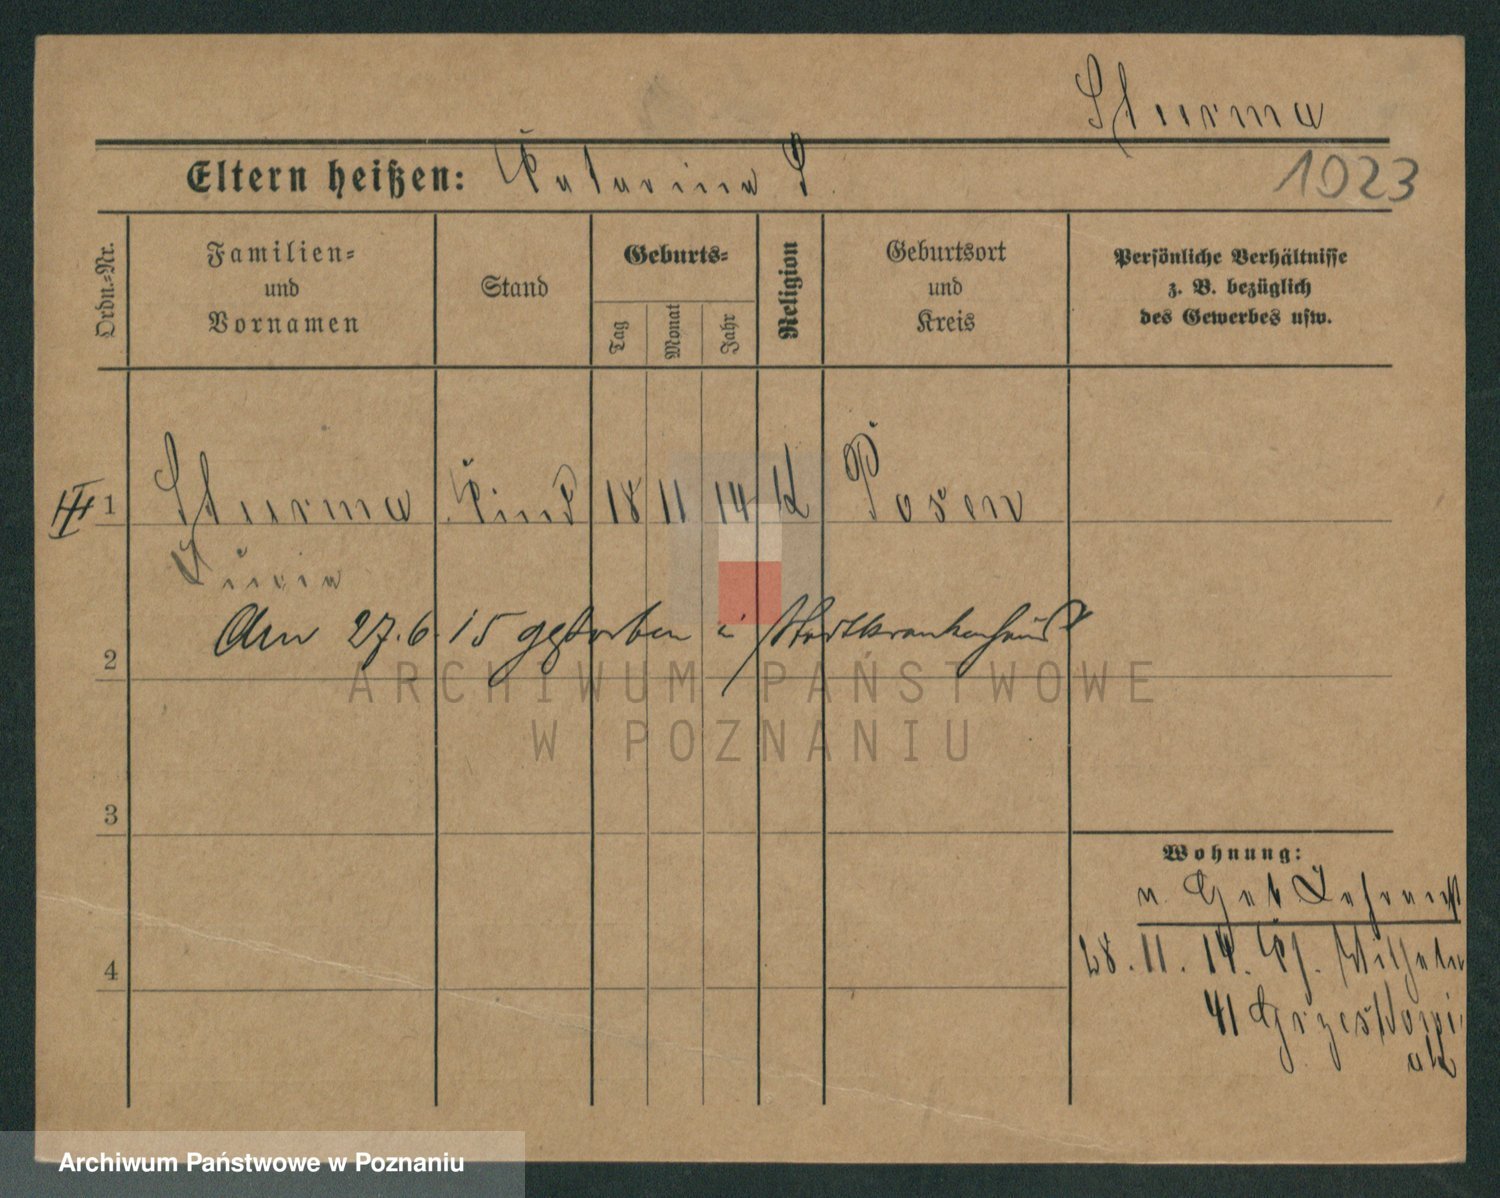 Sturma
Eltern heißen: Katarina S.
1023
Ordn.=Nr.
Familien=
und
Vornamen
Stand
Geburts=
Tag
Monat
Jahr
Religion
Geburtsort
und
Kreis
Persönliche Verhältnisse
z. B. bezüglich
des Gewerbes usw.
III 1 Sturma Kind 18 11 14 k Posen
Lucia
Am 27.6.15 gestorben i/ Stadtkrankenhaus
2
3
4
Wohnung:
28. 11. 14.
41
ARCHIWUM PAŃSTWOWE
W POZNANIU
Archiwum Państwowe w Poznaniu